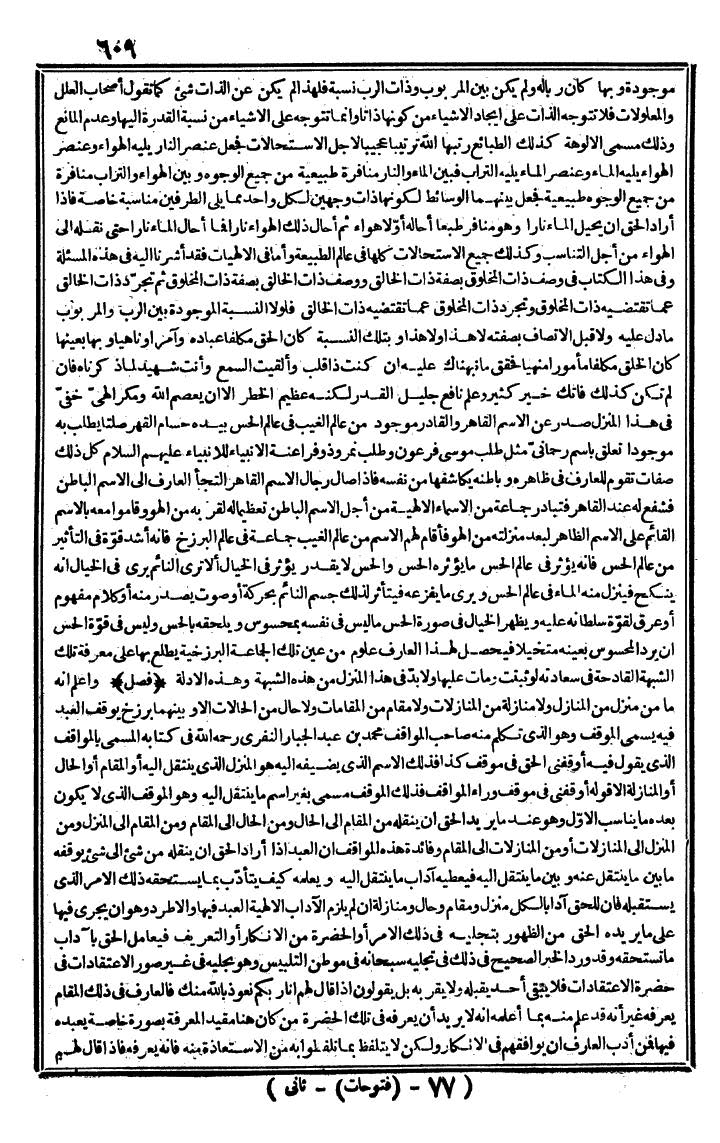 ٦٠٩
موجودة وبها كان ربا له ولم يكن بين المربوب وذات الرب نسبة فلهذا لم يكن عن الذات شئ كما تقول أصحاب العلل
والمعلولات فلا تتوجه الذات على ايجاد الاشياء من كونها ذاتا وانما تتوجه على الاشياء من نسبة القدرة اليها وعدم المانع
وذلك مسمى الالوهة كذلك الطبائع رتبها الله ترتيبا عجيبا لاجل الاستحالات فجعل عنصر النار يليه الهواء وعنصر
الهواء يليه الماء وعنصر الماء يليه التراب فبين الماء والنار منافرة طبيعية من جميع الوجوه وبين الهواء والتراب منافرة
من جميع الوجوه طبيعية فجعل بينهما الوسائط لكونها ذات وجهين لكل واحد مما يلى الطرفين مناسبة خاصة فاذا
أراد الحق ان يحيل الماء نارا وهو منافر طبعا أحاله أوّلا هواء ثم أحال ذلك الهواء نارا فما أحال الماء نارا حتى نقله الى
الهواء من أجل التناسب وكذلك جميع الاستحالات كلها فى عالم الطبيعة وأما فى الالهيات فقد أشرنا اليه فى هذه المسئلة
وفى هذا الكتاب فى وصف ذات المخلوق بصفة ذات الخالق ووصف ذات الخالق بصفة ذات المخلوق ثم تجرّد ذات الخالق
عما تقتضيه ذات المخلوق وتجرد ذات المخلوق عما تقتضيه ذات الخالق فلولا النسبة الموجودة بين الرب والمربوب
ما دل عليه ولا قبل الاتصاف بصفته لا هذا ولا هذا وبتلك النسبة كان الحق مكلفا عباده وآمرا وناهيا وبها بعينها
كان الخلق مكلفا مأمورا منهيا فحقق ما نبهناك عليه ان كنت ذا قلب وألقيت السمع وأنت شهيد لما ذكرناه فان
لم تكن كذلك فاتك خير كثير وعلم نافع جليل القدر لكنه عظيم الخطر الا ان يعصم الله ومكر الهىّ خفىّ
فى هذا المنزل صدر عن الاسم القاهر والقادر موجود من عالم الغيب فى عالم الحس بيده حسام القهر صلتا يطلب به
موجودا تعلق باسم رحمانىّ مثل طلب موسى فرعون وطلب نمروذ وفراعنة الانبياء للانبياء عليهم السلام كل ذلك
صفات تقوم للعارف فى ظاهره وباطنه يكاشفها من نفسه فاذا صال رجال الاسم القاهر التجأ العارف الى الاسم الباطن
فشفع له عند القاهر فتبادر جماعة من الاسماء الالهية من أجل الاسم الباطن تعظيما له لقربه من الهو وقاموا معه بالاسم
القائم على الاسم الظاهر لبعد منزلته من الهو فأقام لهم الاسم من عالم الغيب جماعة فى عالم البرزخ فانه أشد قوّة فى التأثير
من عالم الحس فانه يؤثر فى عالم الحس ما يؤثره الحس والحس لا يقدر يؤثر فى الخيال ألا ترى النائم يرى فى الخيال انه
ينكح فينزل منه الماء فى عالم الحس ويرى ما يفزعه فيتأثر لذلك جسم النائم بحركة أو صوت يصدر منه أو كلام مفهوم
أو عرق لقوّة سلطانه عليه ويظهر الخيال فى صورة الحس ما ليس فى نفسه بمحسوس ويلحقه بالحس وليس فى قوّة الحس
ان يرد المحسوس بعينه متخيلا فيحصل لهذا العارف علوم من عين تلك الجماعة البرزخية يطلع بها على معرفة تلك
الشبهة القادحة فى سعادته لو ثبتت ومات عليها ولا بدّ فى هذا المنزل من هذه الشبهة وهذه الادلة ﴿فصل﴾ واعلم انه
ما من منزل من المنازل ولا منازلة من المنازلات ولا مقام من المقامات ولا حال من الحالات الا وبينهما برزخ يوقف العبد
فيه يسمى الموقف وهو الذى تكلم منه صاحب المواقف محمد بن عبد الجبار النفرى رحمه الله فى كتابه المسمى بالمواقف
الذى يقول فيه أوقفنى الحق فى موقف كذا فذلك الاسم الذى يضيفه اليه هو المنزل الذى ينتقل اليه أو المقام أو الحال
أو المنازلة الا قوله أوقفنى فى موقف وراء المواقف فذلك الموقف مسمى بغير اسم ما ينتقل اليه وهو الموقف الذى لا يكون
بعده ما يناسب الاوّل وهو عند ما يريد الحق ان ينقله من المقام الى الحال ومن الحال الى المقام ومن المقام الى المنزل ومن
المنزل الى المنازلات أو من المنازلات الى المقام وفائدة هذه المواقف ان العبد اذا أراد الحق ان ينقله من شئ الى شئ يوقفه
ما بين ما ينتقل عنه وبين ما ينتقل اليه فيعطيه آداب ما ينتقل اليه ويعلمه كيف يتأدّب بما يستحقه ذلك الامر الذى
يستقبله فان للحق آدابا لكل منزل ومقام وحال ومنازلة ان لم يلزم الآداب الالهية العبد فيها والا طرد وهو ان يجرى فيها
على ما يريده الحق من الظهور بتجليه فى ذلك الامر أو الحضرة من الانكار أو التعريف فيعامل الحق بآداب
ما تستحقه وقد ورد الخبر الصحيح فى ذلك فى تجليه سبحانه فى موطن التلبيس وهو تجليه فى غير صور الاعتقادات فى
حضرة الاعتقادات فلا يبقى أحد يقبله ولا يقر به بل يقولون اذا قال لهم انا ربكم نعوذ بالله منك فالعارف فى ذلك المقام
يعرفه غير أنه قد علم منه بما أعلمه انه لا يريد أن يعرفه فى تلك الحضرة من كان هنا مقيد المعرفة بصورة خاصة يعبده
فيها فمن أدب العارف ان يوافقهم فى الانكار ولكن لا يتلفظ بما تلفظوا به من الاستعاذة منه فانه يعرفه فاذا قال لهم
( ٧٧ - (فتوحات) - ثانى )